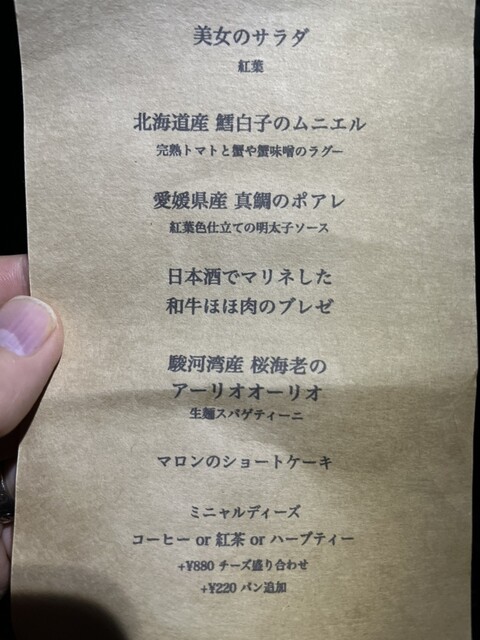 美女のサラダ
紅葉
北海道産 鱈白子のムニエル
完熟トマトと蟹や蟹味噌のラグー
愛媛県産 真鯛のポアレ
紅葉色仕立ての明太子ソース
日本酒でマリネした
和牛ほほ肉のブレゼ
駿河湾産 桜海老の
アーリオオーリオ
生麺スパゲティーニ
マロンのショートケーキ
ミニャルディーズ
コーヒー or 紅茶 or ハーブティー
+¥880 チーズ盛り合わせ
+¥220 パン追加